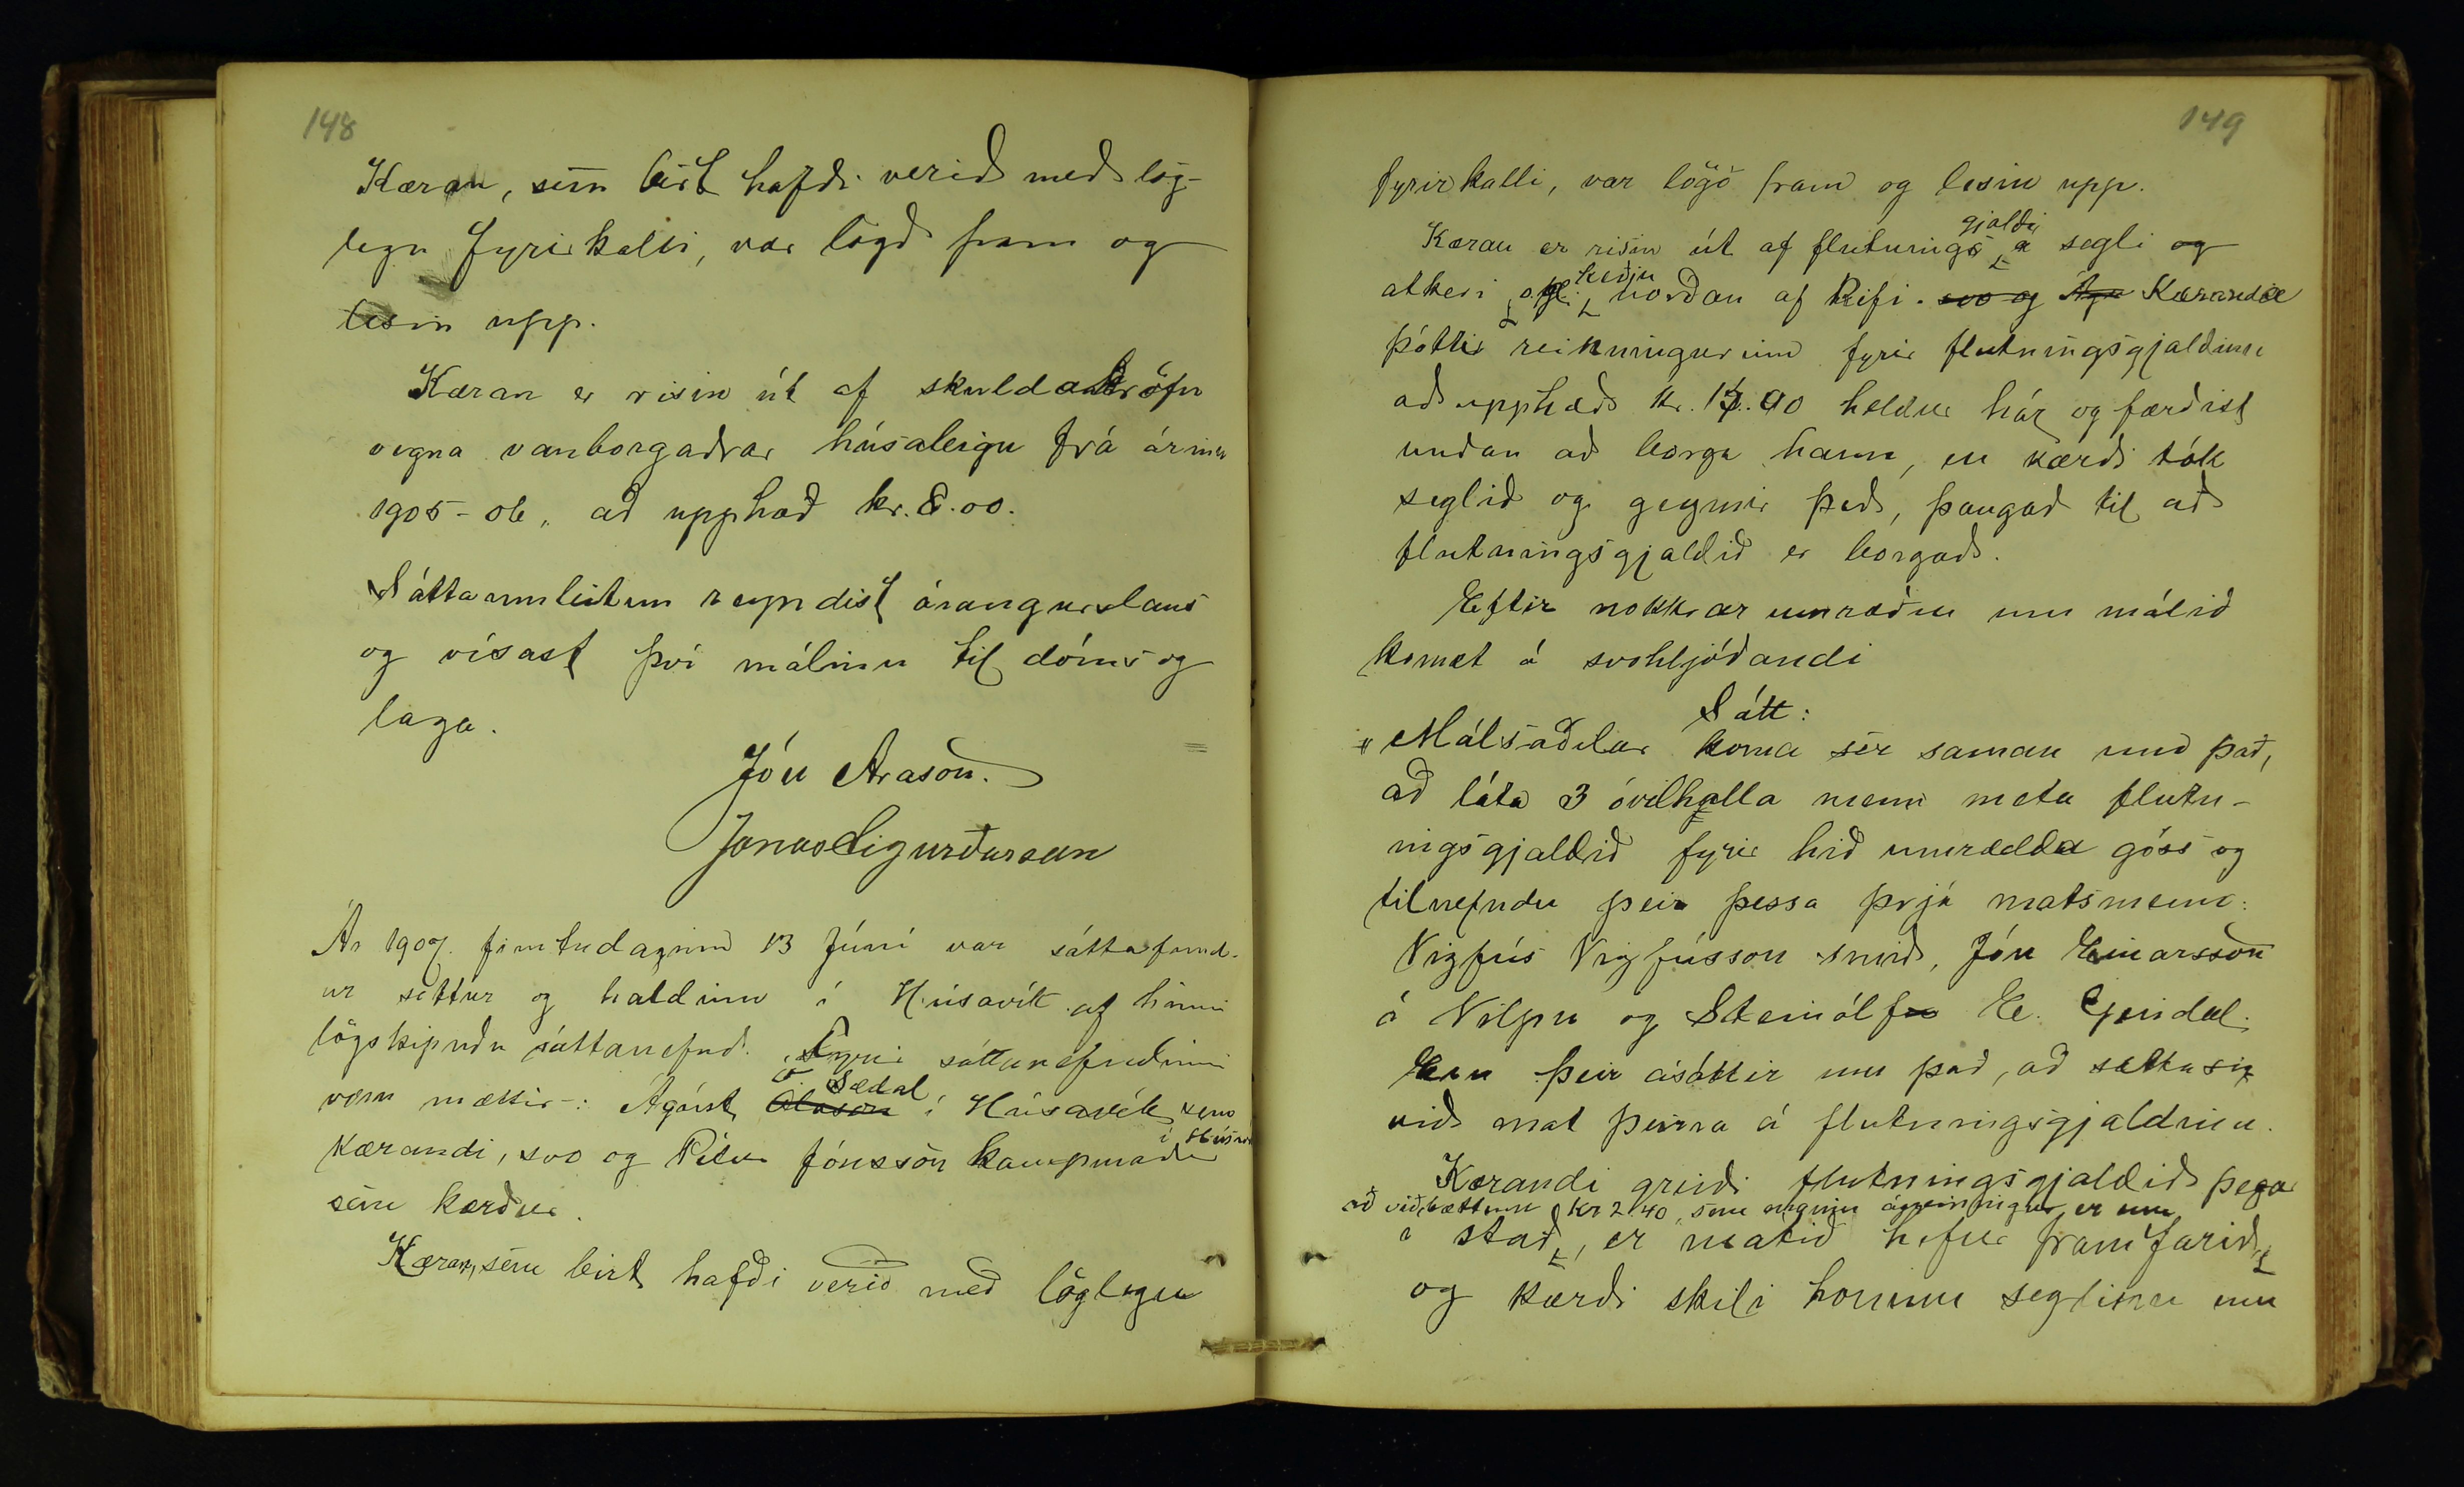 148
Kæran, sem birt hafði verið með lög-
legu fyrirkalli, var lögð fram og
lesin upp.
Kæran er risin út af skuldakröfu
vegna vanborgaðrar húsaleigu frá árinu
1905-06, að upphæð kr. 8.00.
Sáttaumleitun reyndist árangurslaus
og vísast því málinu til dóms og
laga.
Jón Arason.
Jónas Sigurðsson
Ár 1907. fimtudaginn 13 Júní var sáttafund-
ur settur og haldinn í Húsavík af hinni
lögskipuðu sáttanefnd. Fyrir sáttanefndinni
voru mættir: Ágúst Sædal í Húsavík sem
kærandi, svo og Pétur Jónsson kaupmaður í Húsavík
sem kærður.
Kæran, sem birt hafði verið með löglegu
149
fyrirkalli, var lögð fram og lesin upp.
Kæran er risin út af flutningsgjaldi á segli og
akkeri og keðju norðan af Rifi. svo og Kæranda
þóttir reikningurinn fyrir flutningsgjaldinu
að upphæð kr. 17.90 heldur hár og færðist
undan að borga hann, en kærði tók
seglið og geymir það, þangað til að
flutningsgjaldið er borgað.
Eftir nokkrar umræður um málið
komst á svohljóðandi
Sátt:
"Málsaðilar koma sér saman um það,
að láta 3 óvilhalla menn meta flutn-
ingsgjaldið fyrir hið umrædda góss og
tilnefndu þeir þessa þrjá matsmenn:
Vigfús Vigfússon smið, Jón Einarsson
á Vilpu og Steinólf E. Geirdal.
Eru þeir ásáttir um það, að sætta sig
við mat þeirra á flutningsgjaldinu.
Kærandi greiði flutningsgjaldið þegar
að viðbættum kr 2.40, sem enginn ágreiningur er um
í stað, er matið hefur framfarið,
og kærði skili honum seglinu um